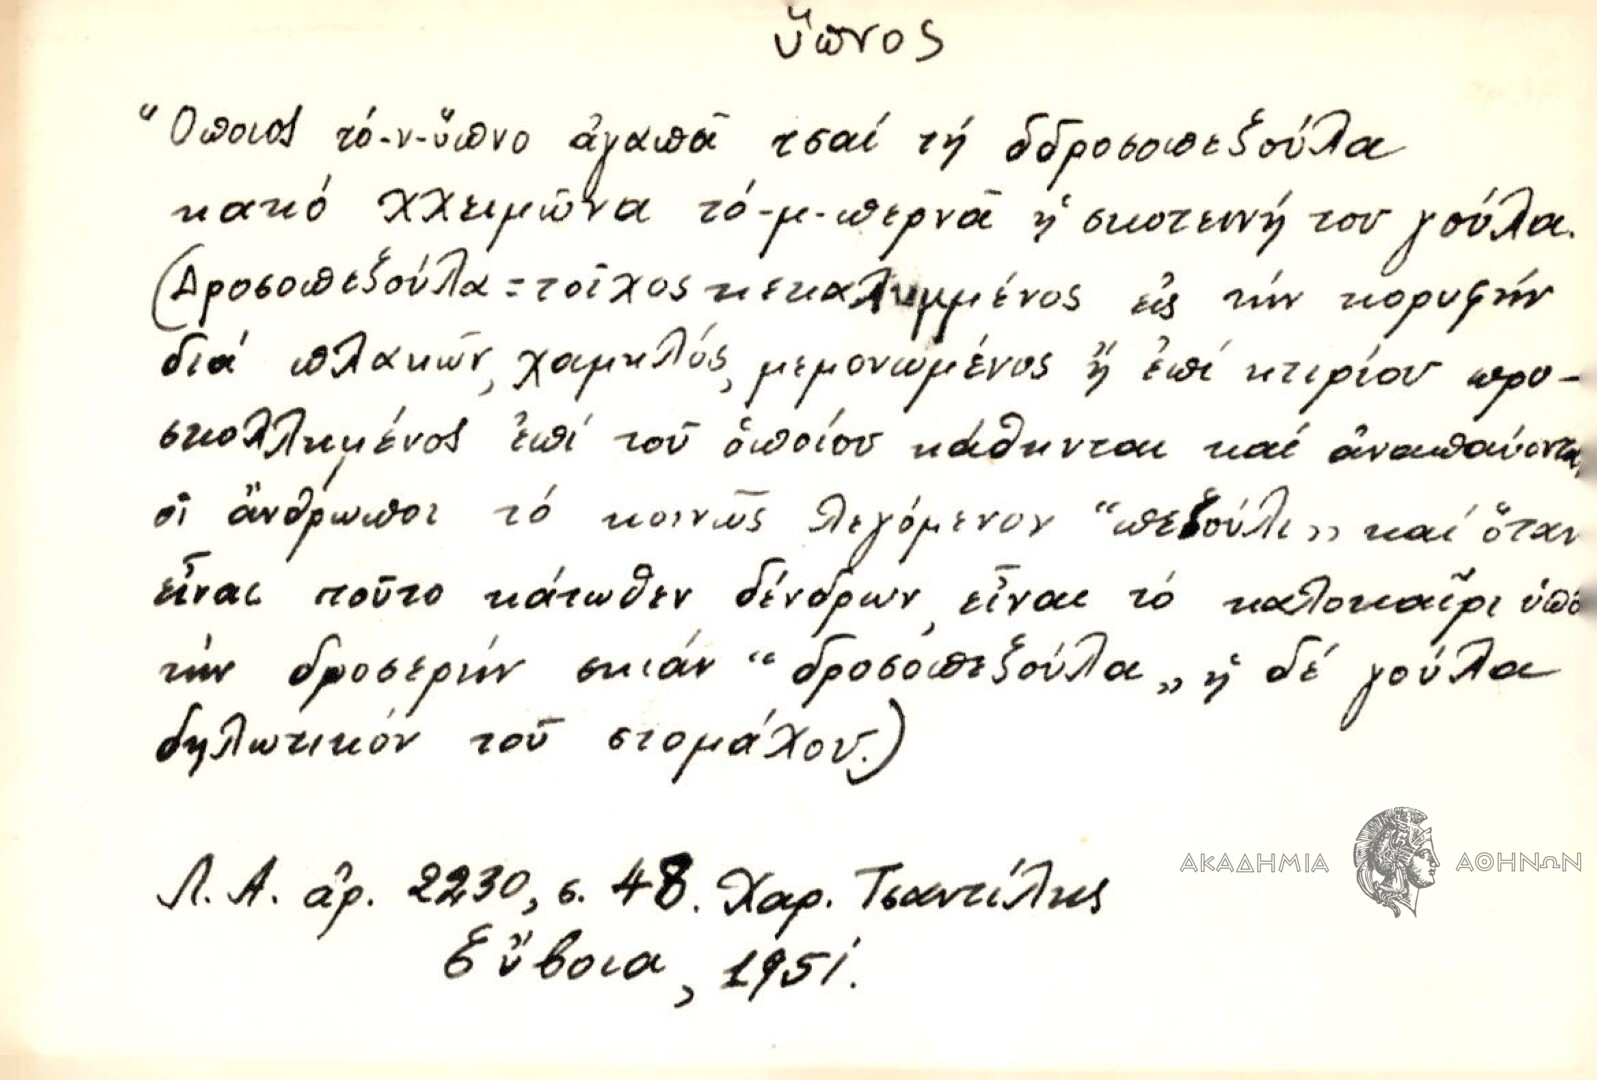 ὕπνος
“Όποιος τό-ν-ὕπνο ἀγαπᾶ τσαί τή δδροσοπεζούλα
κακό χχειμῶνα τό-μ-περνᾶ ἡ σκοτεινή του γούλα.
(Δροσοπεζούλα = τοῖχος κεκαλυμμένος εἰς τήν κορυφήν
διά πλακῶν, χαμηλός, μεμονωμένος ἤ ἐπί κτιρίου προ-
σκολλημένος ἐπί τοῦ ὁποίου κάθηνται καί ἀναπαύονται
οἱ ἄνθρωποι τό κοινῶς λεγόμενον “πεζούλι„ καί ὅταν
εἶναι τοῦτο κάτωθεν δένδρων, εἶναι τό καλοκαῖρι ὑπό
τήν δροσερήν σκιάν “δροσοπεζούλα„ ἡ δέ γούλα
δηλωτικόν τοῦ στομάχου.)
Λ. Α. ἀρ. 2230, σ. 48. Χαρ. Τσαντίλης
Εὔβοια, 1951.
ΑΚΑΔΗΜΙΑ ΑΘΗΝΩΝ